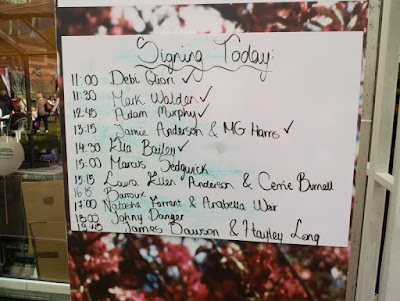 Signing Today:
11:00 Debi Gliori ✓
11:30 Mark Walden ✓
12:45 Adam Murphy ✓
13:15 Jamie Anderson & MG Harris ✓
14:30 Ella Bailey ✓
15:00 Marcus Sedgwick
15:15 Laura Ellen Anderson & Cerrie Burnell
16:15 Barroux
17:00 Natasha Farrant & Arabella Weir
18:00 Johnny Danger
James Dawson & Hayley Long